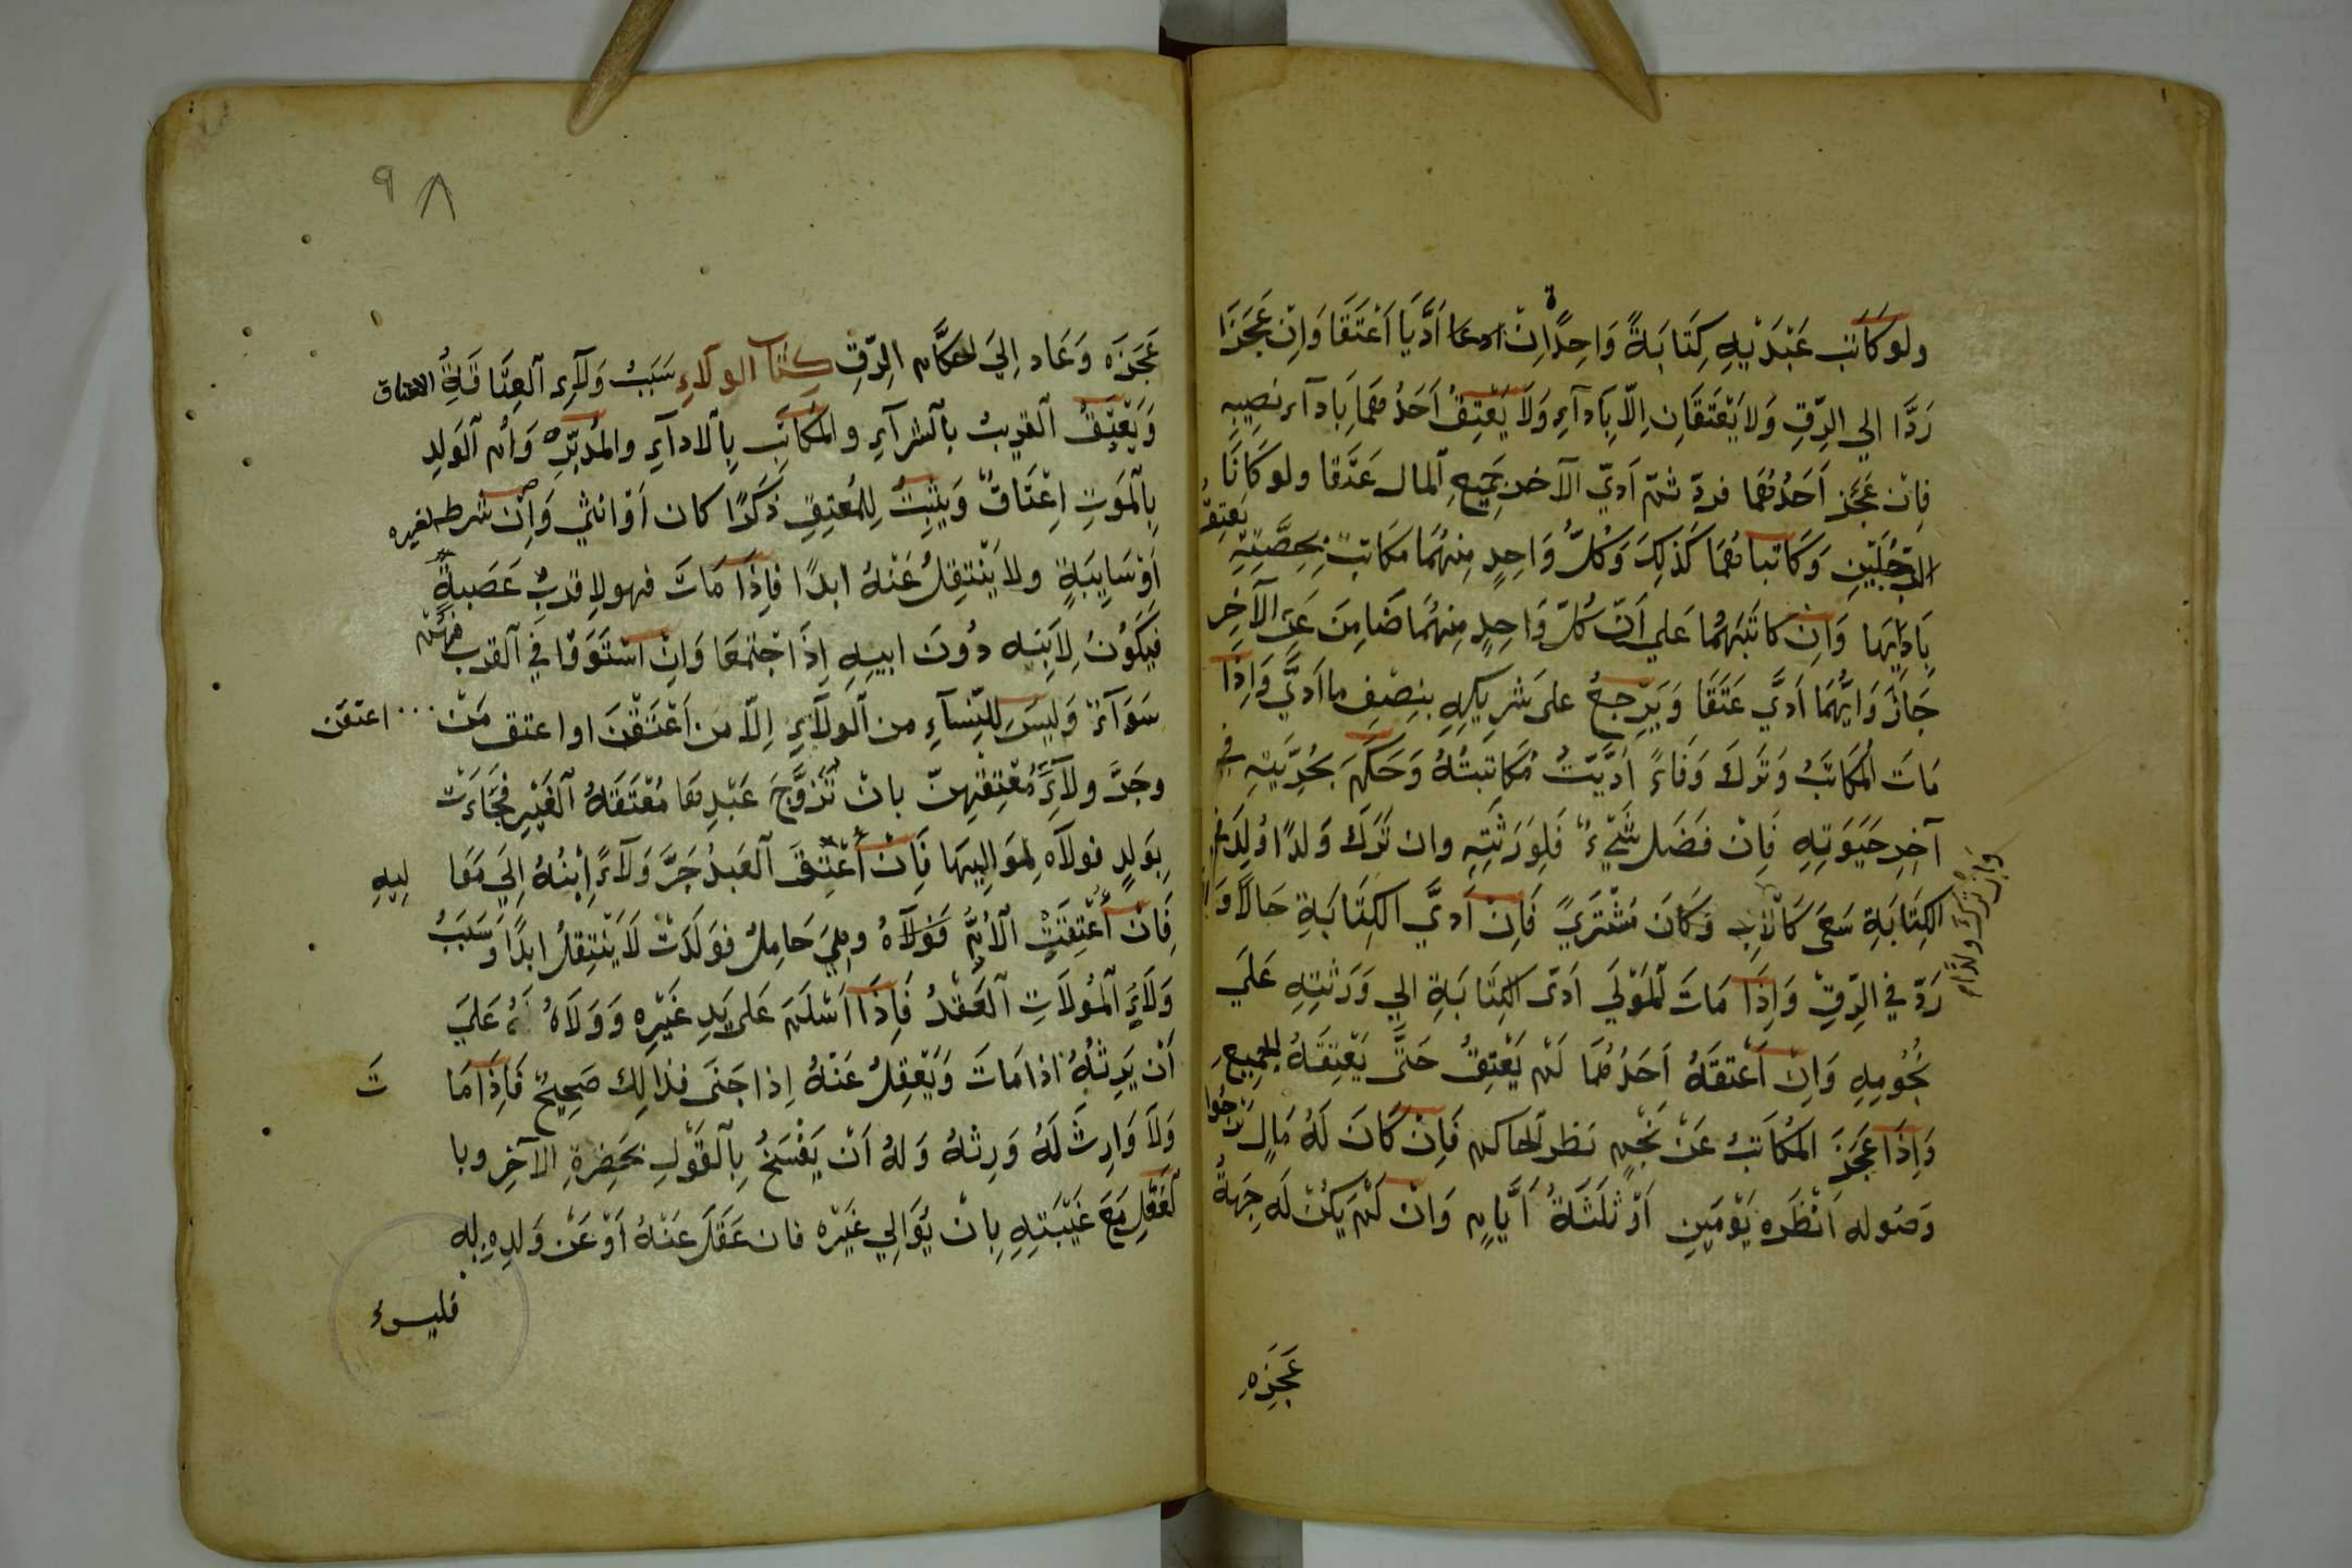 ولو كَاتَبَ عَبْدَيْهِ كِتَابَةً وَاحِدَةً اِنْ اَدَّيَا اَعْتَقَا وَاِنْ عَجَزَا
رَدَّا الي الرِّقِ وَلا يَعْتَقَانِ اِلّا بِاَدآءِ وَلَا يَعْتِقُ اَحَدُهُمَا بِاَدآءِ نصِيبِهِ
فاِنْ عَجَز اَحَدُهُمَا فردّ ثمّ اَديّ الآخر جَمِيْعِ المال عَتَقا ولو كَانَا
الرَّجُلَيْنِ وَكَاتباهُمَا كَذلِكَ وَكُلُّ وَاحِدٍ مِنهُمَا مكَاتبٌ بِحِصَّتِهِ يَعْتِقُ
بِاَدَائِهَا وَاِنْ كاتَبَهُمَا عَلي اَنّ كُلّ وَاحِدٍ مِنهُمَا ضَامِنَ عَنِ الآخِرِ
جَازَ وَايُّهمَا اَديَّ عَتَقَا وَيَرْجِعُ علىَ شرِيكِهِ بنِصْفِ ما اَديَّ وَاِذَا
مَاتَ المُكَاتَبُ وَتَرَكَ وَفَاءً اُدِّيَتْ مُكَاتبَتُهُ وَحَكَمَ بحُرِّيَّتِهِ في
آخِرِ حَيَوتِهِ فَاِنْ فَضَل شَيْءٌ فَلِوَرَثَتِهِ وان تَرَكَ وَلدًا وُلِدَ في
الكِتَابَةِ سَعَى كَالْاَبِ وَكَانَ مُشْترَيً فَاِنْ اَديَّ الكِتَابَةِ حَالًا وَاِلّا
وَاِنْ تَرَكَ وَلَدًا
رَدّ في الرِّقِ وَاِذَا مَاتَ المَوْلَي اَدّى الكِتَابَةِ الي وَرَثتِهِ عَلَي
نُجُومِهِ وَاِنْ اَعْتقَهُ اَحَدُهُمَا لَمْ يَعْتِقُ حَتَّى يَعْتِقَهُ الجميعِ
وَاِذَا عَجَزَ المُكَاتَبُ عَنْ نَجْمٍ نظر الحاكم فَاِنْ كَانَ لَهُ مَالٍ يَرْجُوا
وَصُوله اَنْظَرَه يَوْمَينِ اَوْ ثَلثَةُ اَيَّامٍ وَانْ لَمْ يَكُنْ لَه جِهَةُ
عَجَزَهِ
٩٨
عَجَزَه وَعَاد اِلىَ احكَام الرِّقِ كِتَاب الوَلآءِ سَبَبُ وَلآءِ العِتَاقَةُ الاعتاق
وَيَعْتِقُ القَريبُ بالشرآءِ والمُكاتَبِ بِالادآءِ والمُدَبّرِ وَاُم الوَلدِ
بِالمَوتِ اِعْتَاقٌ وَيَثْبِتُ لِلمُعتِقِ ذَكَرًا كان اَوْ اُنثيَ وَاِنْ شرط لغيره
اَوْ سَايِبَةٍ ولا يَنْتِقِلُ عَنْهُ ابدًا فاِذَا مَاتَ فهو لاِقربِ عَصَبةٍ
فيَكوُنُ لِاِبنِه دُونَ ابيهِ اِذَا جْتمَعَا وَاِنْ اسْتَوَوْا في القرب فَهُمْ
سَوَآءٌ وَلَيسَ لِلنِّسآءِ من الوَلآءِ اِلّا من اَعْتَقْنَ او اعتق مَنْ ... اعتقن
وجَرَّ ولآءَ مُعْتِقِهِنّ بانْ تَزوَّجَ عَبْدِهَا مُعْتَقَةُ الغَيْرِ فَجَاءَتْ
بِوَلدٍ فولآه لِموَاليِهَا فَاِنْ اُعْتِقَ العَبدُ جَرَّ وَلآءَ اِبْنُهُ اِليَ مَوَا ليِهِ
فَاِنْ اُعْتِقَتِ الاُمُّ فَوَلآهُ وهِيَ حَامِلٌ فوَلَدَتْ لَا يَنْتِقلُ ابدًا وَسَبَبُ
وَلَآءِ المُوَلاَتِ العَقْدُ فَاِذَا اَسْلَمَ عَلىَ يَدِ غَيْرِه وَوَلَاهُ عَليَ
اَنْ يَرِثهُ اذا مَاتَ وَيَعْقِلُ عَنهُ اِذا جَنىَ فذالِك صَحِيحٌ فَاِذَا مَا تَ
وَلَا وَارِثَ لَهُ وَرِثهُ وَلهُ اَنْ يَفْسَخُ بِالقَوْلِ بحَضِرةِ الآخِرِ وبا
لفِعْلِ مَعَ غَيْبَتِهِ بِانْ يُوَالي غَيْرَه فان عَقَلَ عَنْهُ اَوْ عَنْ وَلدِهِ
فليسَ